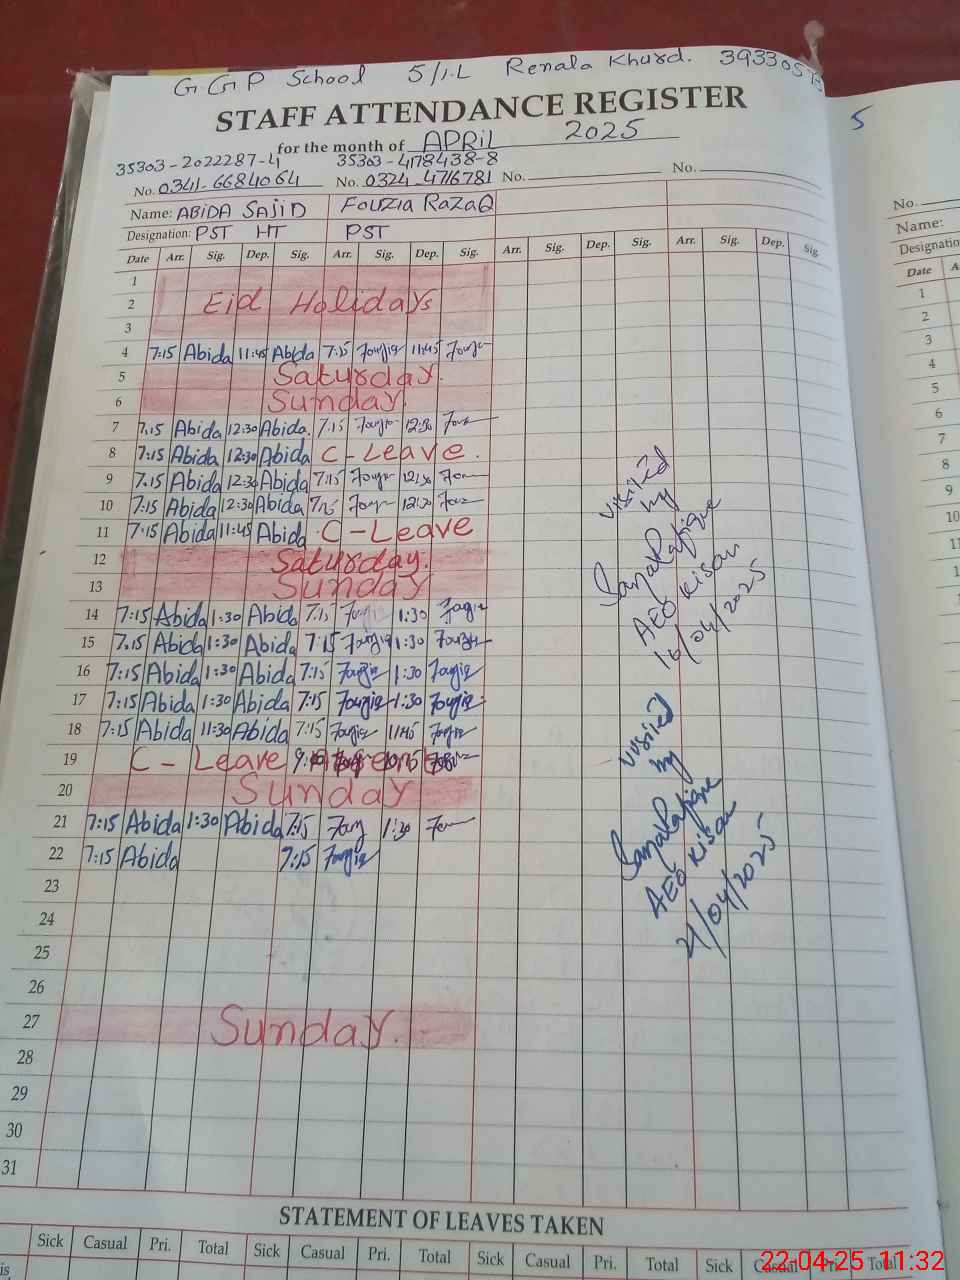 G.G.P School 5/1.L Renala Khurd.
STAFF ATTENDANCE REGISTER
for the month of APRIL 2025
35303-2022287-4 35303-4178438-8
No. 0341-6684064 No. 0324-4716781 No. No.
Name: ABIDA SAJID FOUZIA RAZAQ
Designation: PST HT PST
Date Arr. Sig. Dep. Sig. Arr. Sig. Dep. Sig. Arr. Sig. Dep. Sig. Arr. Sig. Dep. Sig.
1
2 Eid Holidays
3
4 7:15 Abida 11:45 Abida 7:15 Fouzia 11:45
5 Saturday.
6 Sunday.
7 7.15 Abida 12:30 Abida. 7:15 12:30
8 7:15 Abida 12:30 Abida C-Leave.
9 7.15 Abida 12:30 Abida 7:15 12:30
10 7:15 Abida 12:30 Abida 7:15 12:30
11 7:15 Abida 11:45 Abida C-Leave
12 Saturday.
13 Sunday
14 7:15 Abida 1:30 Abida 7:15 1:30
15 7.15 Abida 1:30 Abida 7:15 Fouzia 1:30
16 7:15 Abida 1:30 Abida 7:15 Fouzia 1:30 Fouzia
17 7:15 Abida 1:30 Abida 7:15 Fouzia 1:30 Fouzia
18 7:15 Abida 11:30 Abida 7:15 Fouzia 11:45 Fouzia
19 C-Leave
20 Sunday
21 7:15 Abida 1:30 Abida 7:15 1:30
22 7:15 Abida 7:15 Fouzia
23
24
25
26
27 Sunday.
28
29
30
31
visited
by
AEO Kisan
16/04/2025
visited
by
AEO Kisan
21/04/2025
STATEMENT OF LEAVES TAKEN
Sick Casual Pri. Total Sick Casual Pri. Total Sick Casual Pri. Total Sick Casual Pri. Total
5
No.
Name:
Designatio
Date A
1
2
3
4
5
6
7
8
9
10
11
12
13
22-04-25 11:32